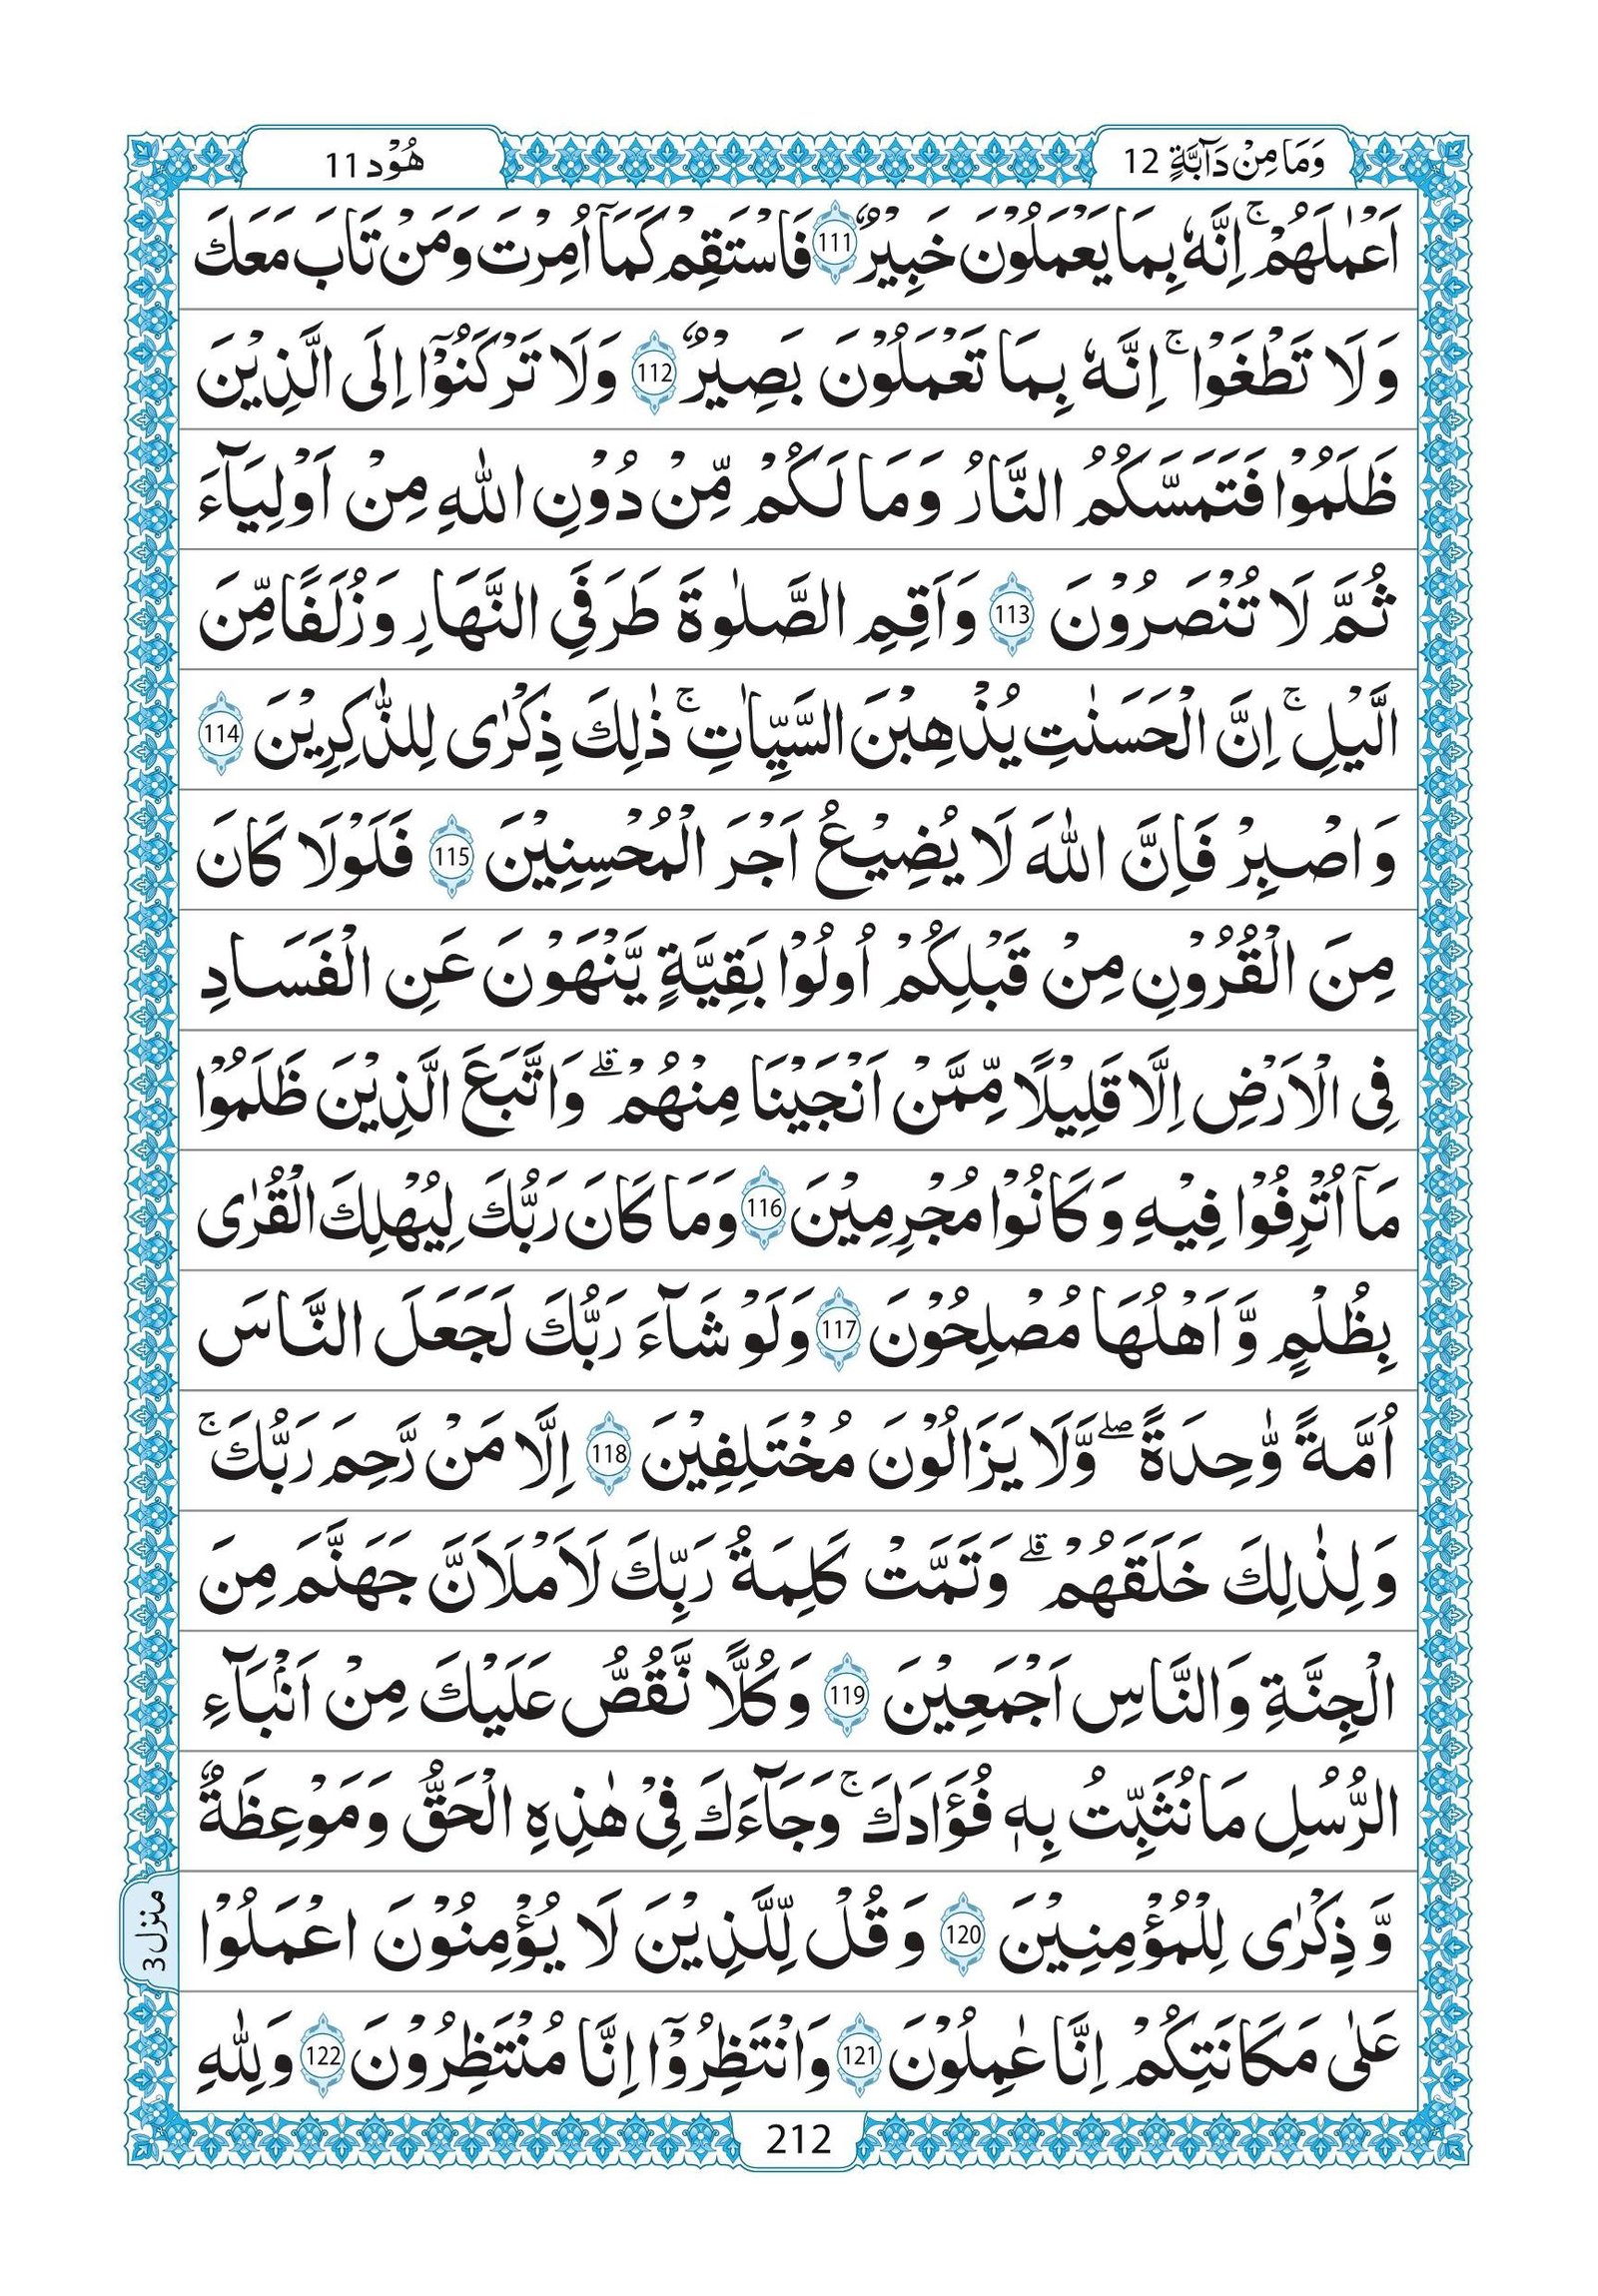 وَمَا مِنْ دَآبَّةٍ 12
هُوْد 11
اَعْمٰلَهُمْ ۚ اِنَّهٗ بِمَا يَعْمَلُوْنَ خَبِيْرٌ 111 فَاسْتَقِمْ كَمَآ اُمِرْتَ وَمَنْ تَابَ مَعَكَ
وَلَا تَطْغَوْا ۚ اِنَّهٗ بِمَا تَعْمَلُوْنَ بَصِيْرٌ 112 وَلَا تَرْكَنُوْٓا اِلَى الَّذِيْنَ
ظَلَمُوْا فَتَمَسَّكُمُ النَّارُ وَمَا لَكُمْ مِّنْ دُوْنِ اللّٰهِ مِنْ اَوْلِيَآءَ
ثُمَّ لَا تُنْصَرُوْنَ 113 وَاَقِمِ الصَّلٰوةَ طَرَفَيِ النَّهَارِ وَزُلَفًا مِّنَ
الَّيْلِ ۚ اِنَّ الْحَسَنٰتِ يُذْهِبْنَ السَّيِّاٰتِ ۚ ذٰلِكَ ذِكْرٰى لِلذّٰكِرِيْنَ 114
وَاصْبِرْ فَاِنَّ اللّٰهَ لَا يُضِيْعُ اَجْرَ الْمُحْسِنِيْنَ 115 فَلَوْلَا كَانَ
مِنَ الْقُرُوْنِ مِنْ قَبْلِكُمْ اُولُوْا بَقِيَّةٍ يَّنْهَوْنَ عَنِ الْفَسَادِ
فِى الْاَرْضِ اِلَّا قَلِيْلًا مِّمَّنْ اَنْجَيْنَا مِنْهُمْ ۗ وَاتَّبَعَ الَّذِيْنَ ظَلَمُوْا
مَآ اُتْرِفُوْا فِيْهِ وَكَانُوْا مُجْرِمِيْنَ 116 وَمَا كَانَ رَبُّكَ لِيُهْلِكَ الْقُرٰى
بِظُلْمٍ وَّاَهْلُهَا مُصْلِحُوْنَ 117 وَلَوْ شَآءَ رَبُّكَ لَجَعَلَ النَّاسَ
اُمَّةً وّٰحِدَةً ۖ وَّلَا يَزَالُوْنَ مُخْتَلِفِيْنَ 118 اِلَّا مَنْ رَّحِمَ رَبُّكَ ۚ
وَلِذٰلِكَ خَلَقَهُمْ ۗ وَتَمَّتْ كَلِمَةُ رَبِّكَ لَاَمْلَاَنَّ جَهَنَّمَ مِنَ
الْجِنَّةِ وَالنَّاسِ اَجْمَعِيْنَ 119 وَكُلًّا نَّقُصُّ عَلَيْكَ مِنْ اَنْۢبَآءِ
الرُّسُلِ مَا نُثَبِّتُ بِهٖ فُؤَادَكَ ۚ وَجَآءَكَ فِيْ هٰذِهِ الْحَقُّ وَمَوْعِظَةٌ
وَّذِكْرٰى لِلْمُؤْمِنِيْنَ 120 وَقُلْ لِّلَّذِيْنَ لَا يُؤْمِنُوْنَ اعْمَلُوْا
عَلٰى مَكَانَتِكُمْ اِنَّا عٰمِلُوْنَ 121 وَانْتَظِرُوْٓا اِنَّا مُنْتَظِرُوْنَ 122 وَلِلّٰهِ
منزل 3
212